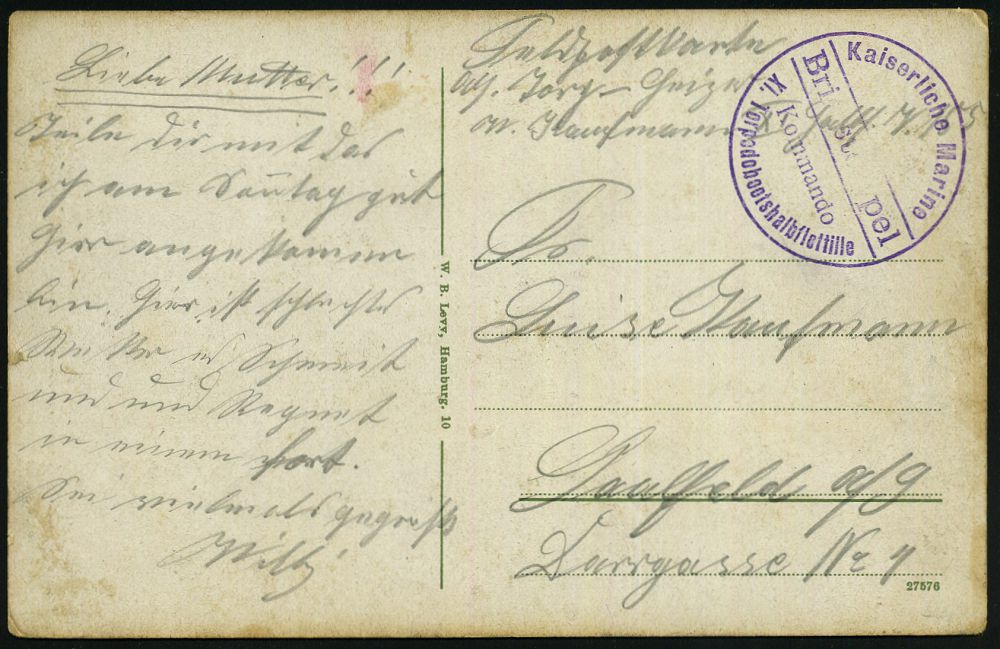 Liebe Mutter!!!
Teile dir mit das
ich am Sontag gut
hier angekomen
bin. Hier ist schlechtes
Wetter es Schneit
und und Regnet
in einem fort.
Sei vielmals gegrüßt
Willi
Feldpostkarte
Abs. Torp-Heizer
W. Kaufmann
Kaiserliche Marine
Briefstempel
Kommando
XI. Torpedobootshalbflottille
Fr.
Luise Kaufmann
Saalfeld a/S
Darrgasse No 4
W. B. Levy, Hamburg. 10
27576